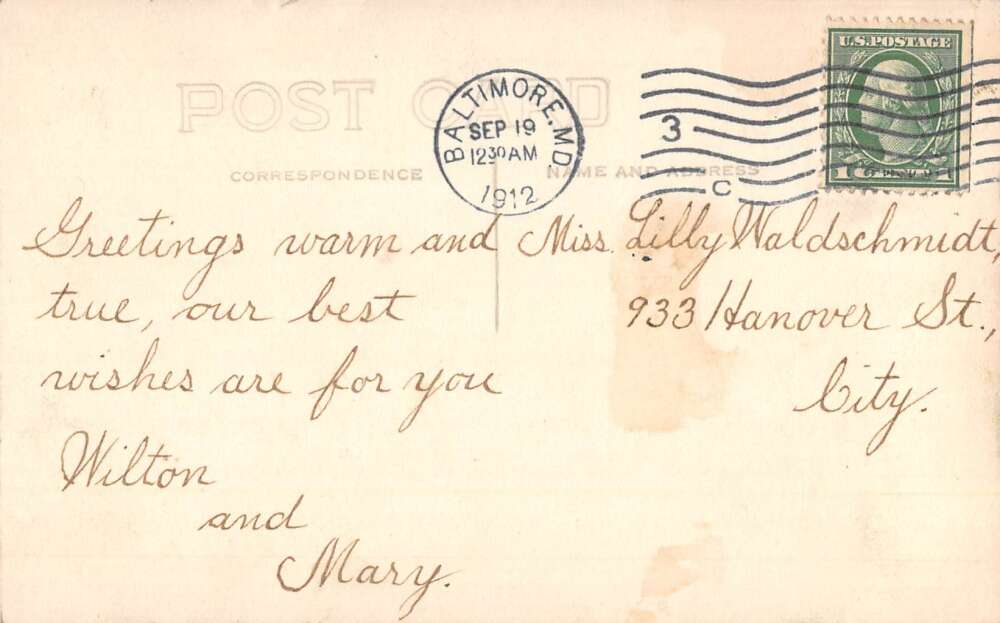 POST CARD
BALTIMORE, MD.
SEP 19
12 30 AM
1912
3
C
U.S. POSTAGE
1
CORRESPONDENCE
NAME AND ADDRESS
Greetings warm and
true, our best
wishes are for you
Wilton
and
Mary.
Miss. Lilly Waldschmidt,
933 Hanover St.,
City.